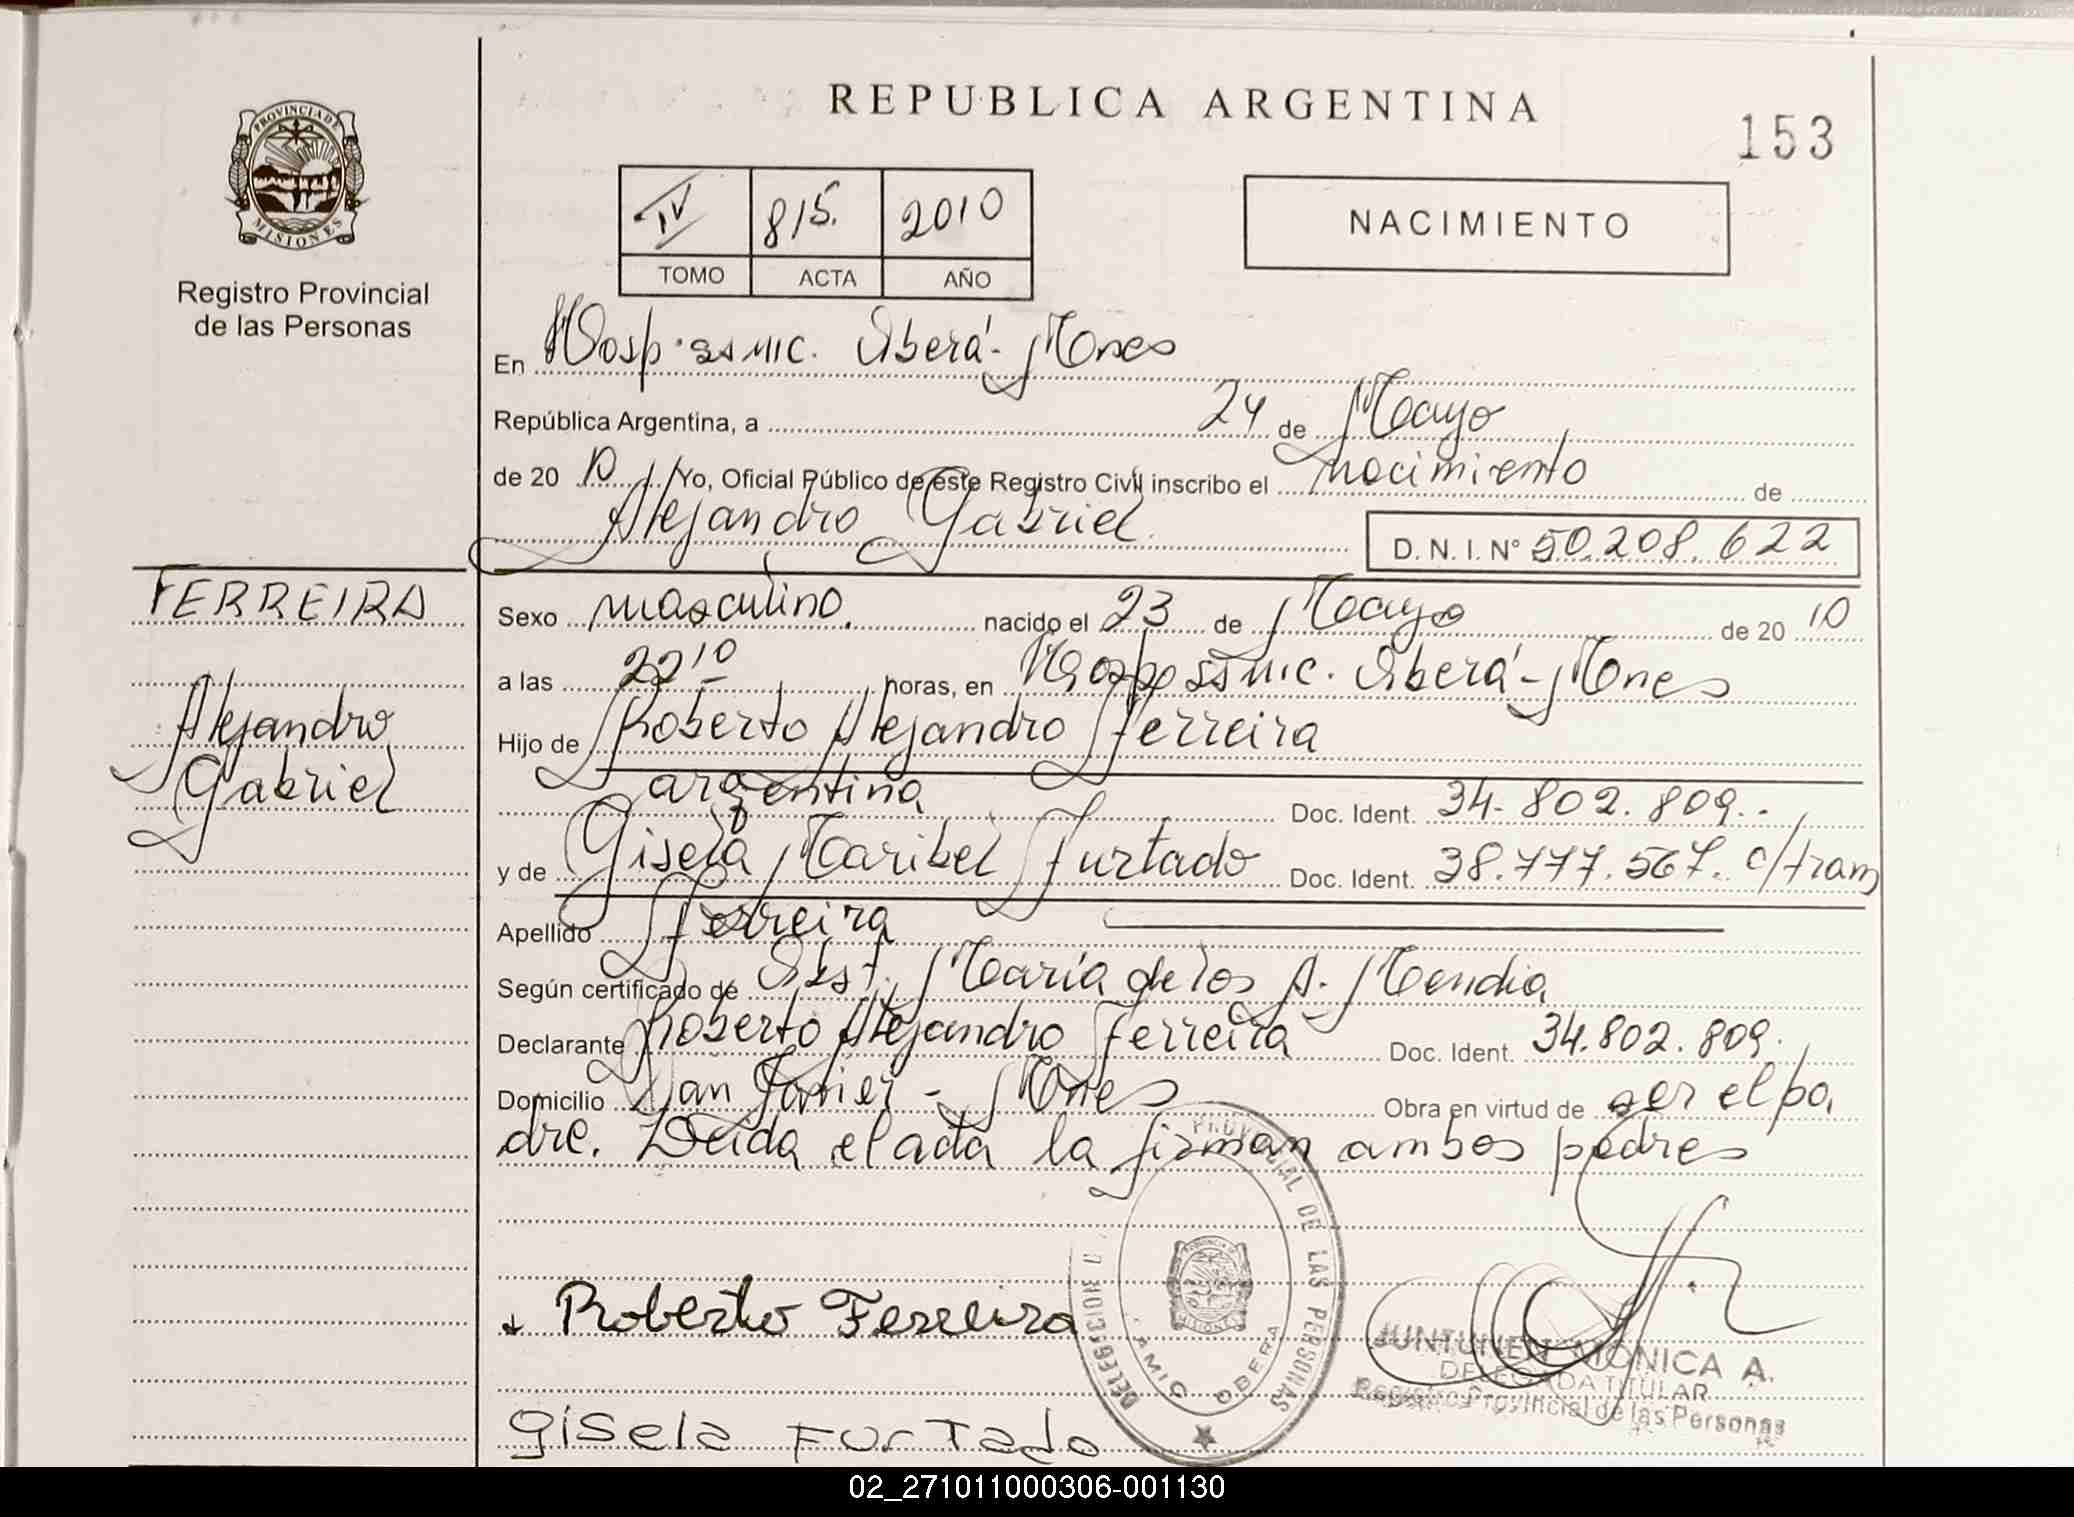 REPUBLICA ARGENTINA
153
PROVINCIA DE
MISIONES
Registro Provincial
de las Personas
IV 815. 2010
TOMO ACTA AÑO
NACIMIENTO
En Hosp. ssmic. Oberá - Mnes
República Argentina, a 24 de Mayo
de 20 10 Yo, Oficial Público de este Registro Civil inscribo el nacimiento de
Alejandro Gabriel.
D. N. I. Nº 50.208.622
FERREIRA
Alejandro
Gabriel
Sexo masculino. nacido el 23 de Mayo de 20 10
a las 22 10 horas, en Hosp. ssmic. Oberá - Mnes
Hijo de Roberto Alejandro Ferreira
argentina Doc. Ident. 34.802.809.
y de Gisela Maribel Furtado Doc. Ident. 38.777.567. c/tram
Apellido Ferreira
Según certificado de Obst. María de los A. Mendia
Declarante Roberto Alejandro Ferreira Doc. Ident. 34.802.809.
Domicilio San Javier - Mnes Obra en virtud de ser el pa
dre. Leida el acta la firman ambos padres
Roberto Ferreira
PROVINCIAL DE LAS PERSONAS
PROVINCIA DE
MISIONES
OBERA
JUNTUNEN MONICA A.
DELEGADA TITULAR
Registro Provincial de las Personas
Gisela Furtado
02_271011000306-001130